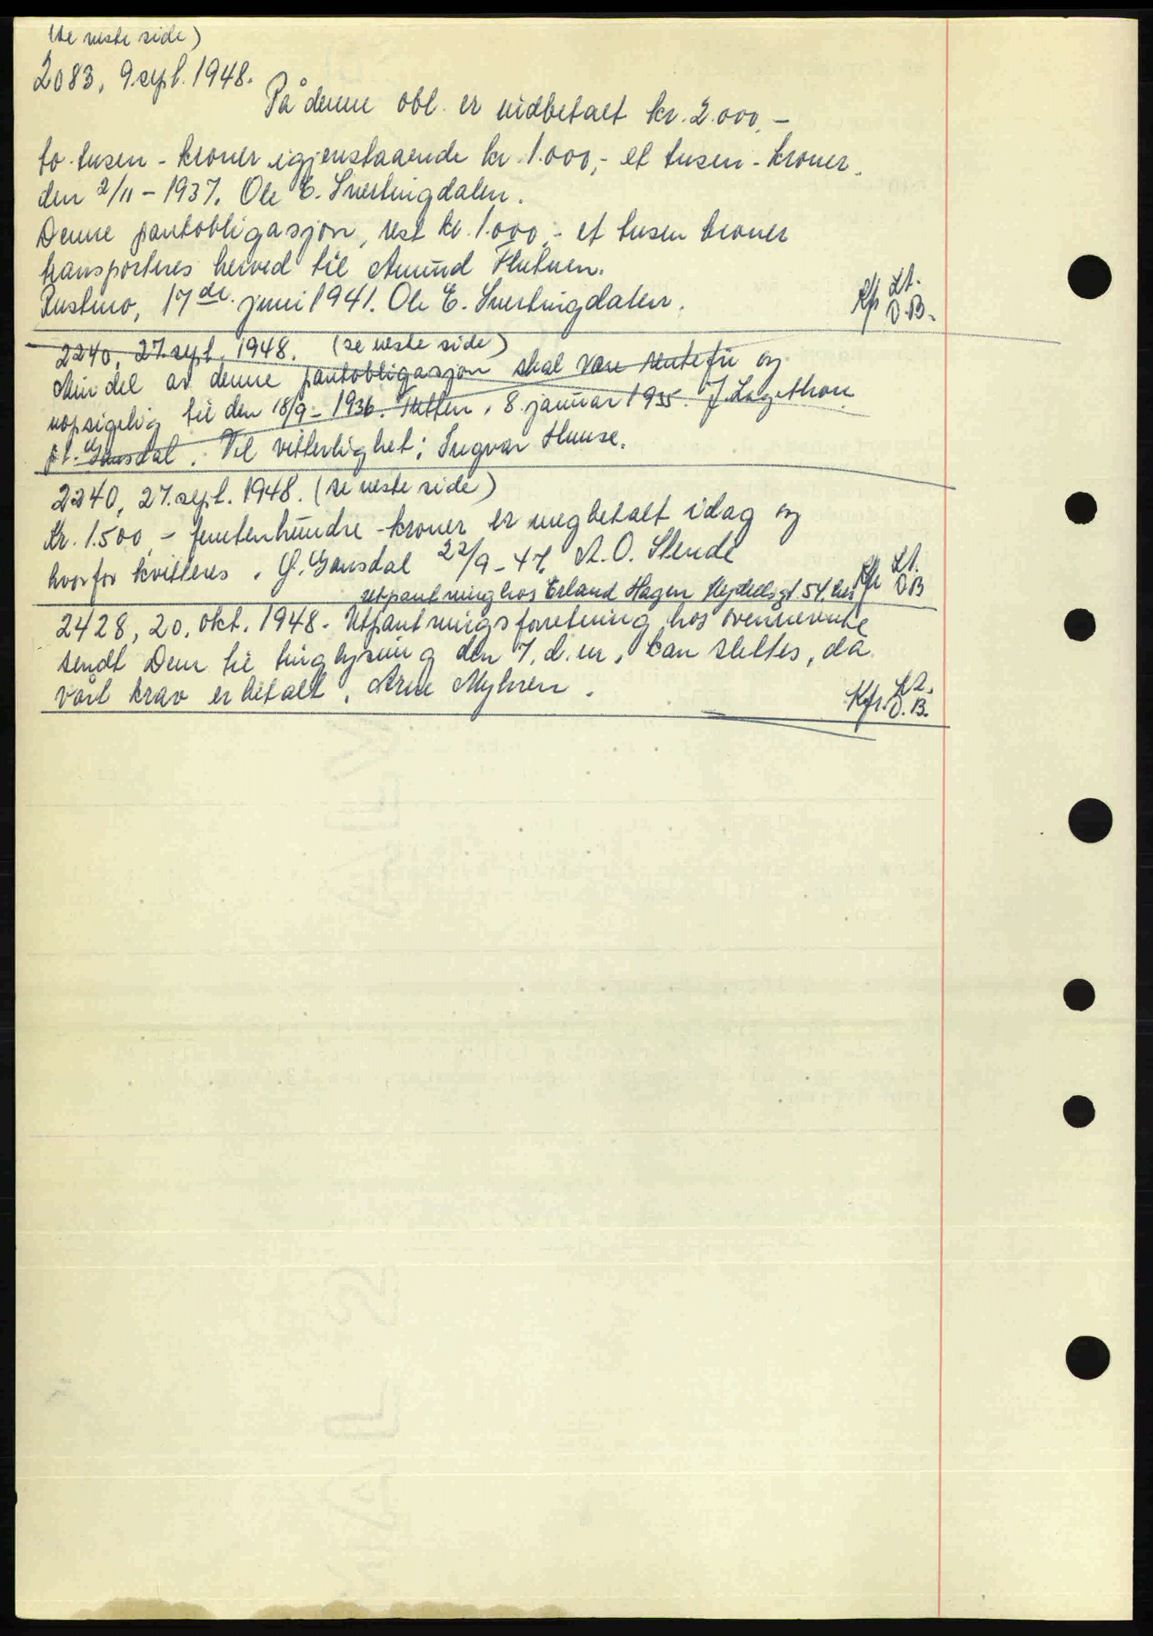 (se neste side)
2083, 9. sept. 1948.
På denne obl. er nedbetalt kr. 2.000,-
to tusen - kroner igjenstaaende kr 1.000,- et tusen - kroner.
den 2/11 - 1937. Ole E. Svertingdalen.
Denne pantobligasjon, rest kr. 1.000,- et tusen kroner
transporteres herved til Amund
17de. juni 1941. Ole E. Svertingdalen.
Kfr. D.B.
2240, 27. sept. 1948. (se neste side)
Min del av denne pantobligasjon skal være rentefri og
uopsigelig til den 18/9 - 1936. Tretten, 8. januar 1935. J.
pt. Gausdal. Til vitterlighet: Ingvar
2240, 27. sept. 1948. (se neste side)
Kr. 1.500,- femtenhundre - kroner er meg betalt idag og
hvorfor kvitteres. G. Gausdal 22/9 - 47. A. O. Stende
Kfr. D.B
utpantning hos Erland Hagen
2428, 20. okt. 1948. Utpantningsforretning hos ovennevnte
sendt Dem til tinglysning den 7. d.m., kan slettes, da
vårt krav er betalt. Arne Myhren.
Kfr. D.B.